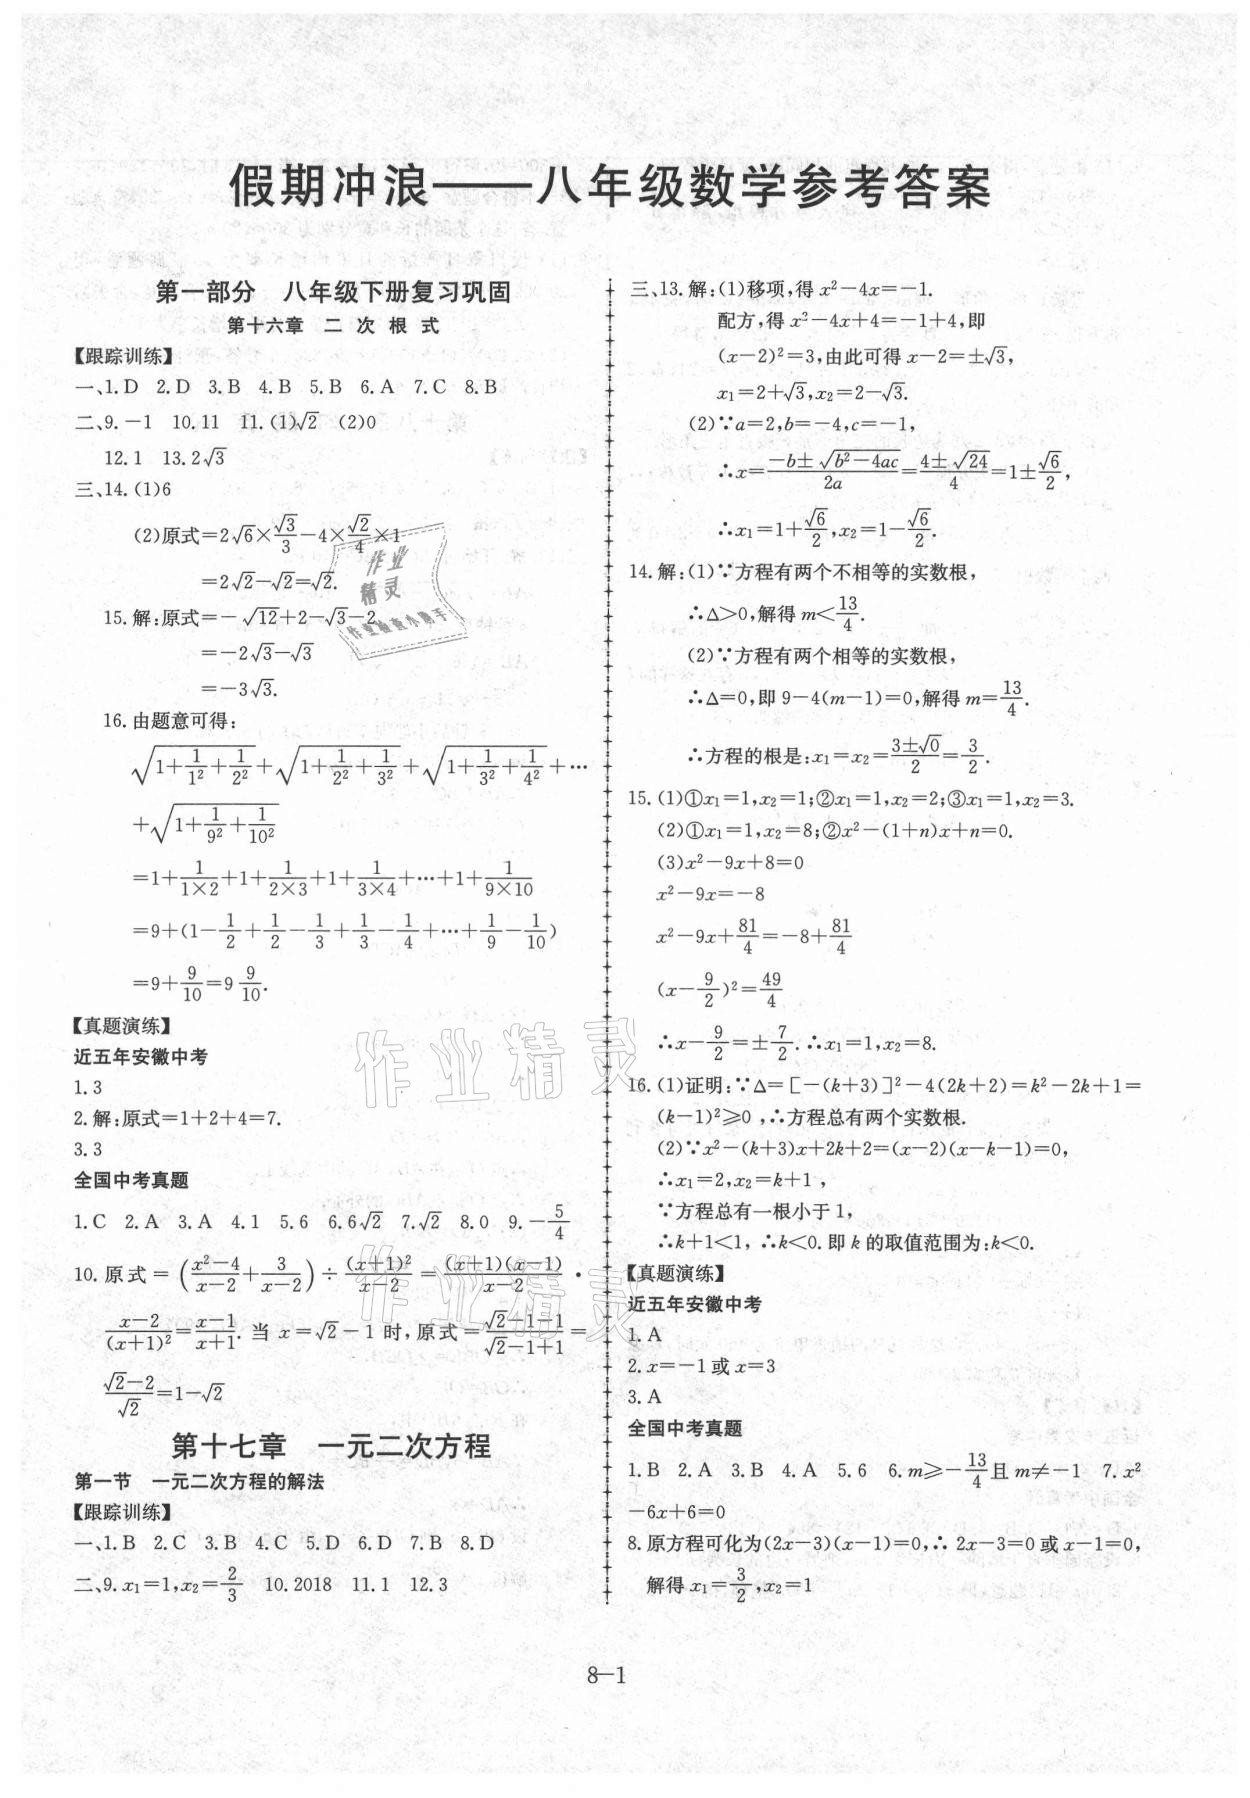 假期冲浪——八年级数学参考答案
第一部分 八年级下册复习巩固
第十六章 二 次 根 式
【跟踪训练】
一、1.D 2.D 3.B 4.B 5.B 6.A 7.C 8.B
二、9.-1 10.11 11.(1)√2 (2)0
12.1 13.2√3
三、14.(1)6
(2)原式=2√6×√3/3-4×√2/4×1
=2√2-√2=√2.
15.解:原式=-√12+2-√3-2
=-2√3-√3
=-3√3.
16.由题意可得:
√(1+1/1²+1/2²)+√(1+1/2²+1/3²)+√(1+1/3²+1/4²)+…
+√(1+1/9²+1/10²)
=1+1/(1×2)+1+1/(2×3)+1+1/(3×4)+…+1+1/(9×10)
=9+(1-1/2+1/2-1/3+1/3-1/4+…+1/9-1/10)
=9+9/10=9 9/10.
【真题演练】
近五年安徽中考
1.3
2.解:原式=1+2+4=7.
3.3
全国中考真题
1.C 2.A 3.A 4.1 5.6 6.6√2 7.√2 8.0 9.-5/4
10.原式=((x²-4)/(x-2)+3/(x-2))÷(x+1)²/(x-2)=(x+1)(x-1)/(x-2)·
(x-2)/(x+1)²=(x-1)/(x+1).当x=√2-1时,原式=(√2-1-1)/(√2-1+1)=
(√2-2)/√2=1-√2
第十七章 一元二次方程
第一节 一元二次方程的解法
【跟踪训练】
一、1.B 2.C 3.B 4.C 5.D 6.D 7.B 8.D
二、9.x₁=1,x₂=2/3 10.2018 11.1 12.3
三、13.解:(1)移项,得x²-4x=-1.
配方,得x²-4x+4=-1+4,即
(x-2)²=3,由此可得x-2=±√3,
x₁=2+√3,x₂=2-√3.
(2)∵a=2,b=-4,c=-1,
∴x=(-b±√(b²-4ac))/2a=(4±√24)/4=1±√6/2,
∴x₁=1+√6/2,x₂=1-√6/2.
14.解:(1)∵方程有两个不相等的实数根,
∴Δ>0,解得m<13/4.
(2)∵方程有两个相等的实数根,
∴Δ=0,即9-4(m-1)=0,解得m=13/4.
∴方程的根是:x₁=x₂=(3±√0)/2=3/2.
15.(1)①x₁=1,x₂=1;②x₁=1,x₂=2;③x₁=1,x₂=3.
(2)①x₁=1,x₂=8;②x²-(1+n)x+n=0.
(3)x²-9x+8=0
x²-9x=-8
x²-9x+81/4=-8+81/4
(x-9/2)²=49/4
∴x-9/2=±7/2.∴x₁=1,x₂=8.
16.(1)证明:∵Δ=[-(k+3)]²-4(2k+2)=k²-2k+1=
(k-1)²≥0,∴方程总有两个实数根.
(2)∵x²-(k+3)x+2k+2=(x-2)(x-k-1)=0,
∴x₁=2,x₂=k+1,
∵方程总有一根小于1,
∴k+1<1,∴k<0.即k的取值范围为:k<0.
【真题演练】
近五年安徽中考
1.A
2.x=-1或x=3
3.A
全国中考真题
1.B 2.A 3.B 4.A 5.6 6.m≥-13/4且m≠-1 7.x²
-6x+6=0
8.原方程可化为(2x-3)(x-1)=0,∴2x-3=0或x-1=0,
解得x₁=3/2,x₂=1
8-1
作业
精灵
作业检查小助手
作业精灵
作业精灵